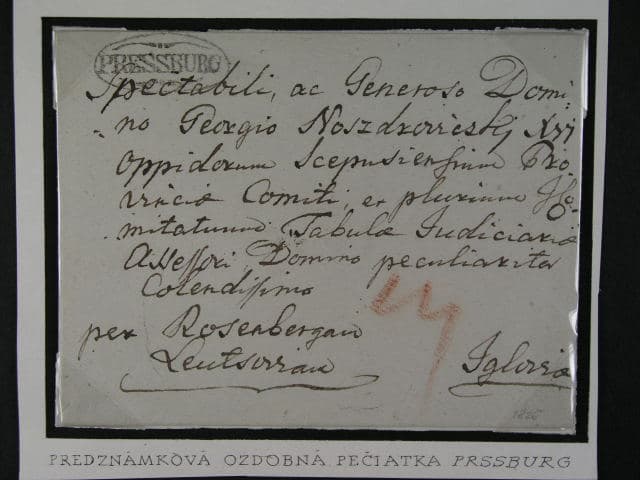 PRESSBURG
Spectabili, ac Generoso Domi:
no Georgio Noszdroviczky XVI
oppidorum Scepusiensium Pro
vinciæ Comiti, et plurium
mitatuum Tabulæ Judiciariæ
Assessori Domino peculiariter
Colendissimo
per Rosenbergam
Leutsoviam
Igloviæ
PREDZNÁMKOVÁ OZDOBNÁ PEČIATKA PRSSBURG